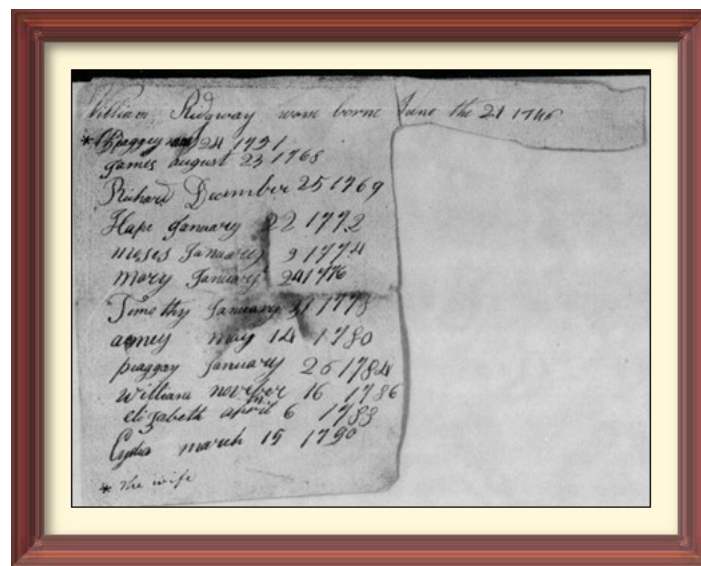 William Ridgway worne borne June the 21 1745
* Peaggey may 24 1751
James august 23 1768
Richard December 25 1769
Hape January 22 1772
moses January 9 1774
mary January 24 1776
Timothy January 31 1778
agney may 14 1780
peaggay January 26 1784
william november 16 1786
elizabeth april 6 1783
Lydia march 15 1790
* the wife